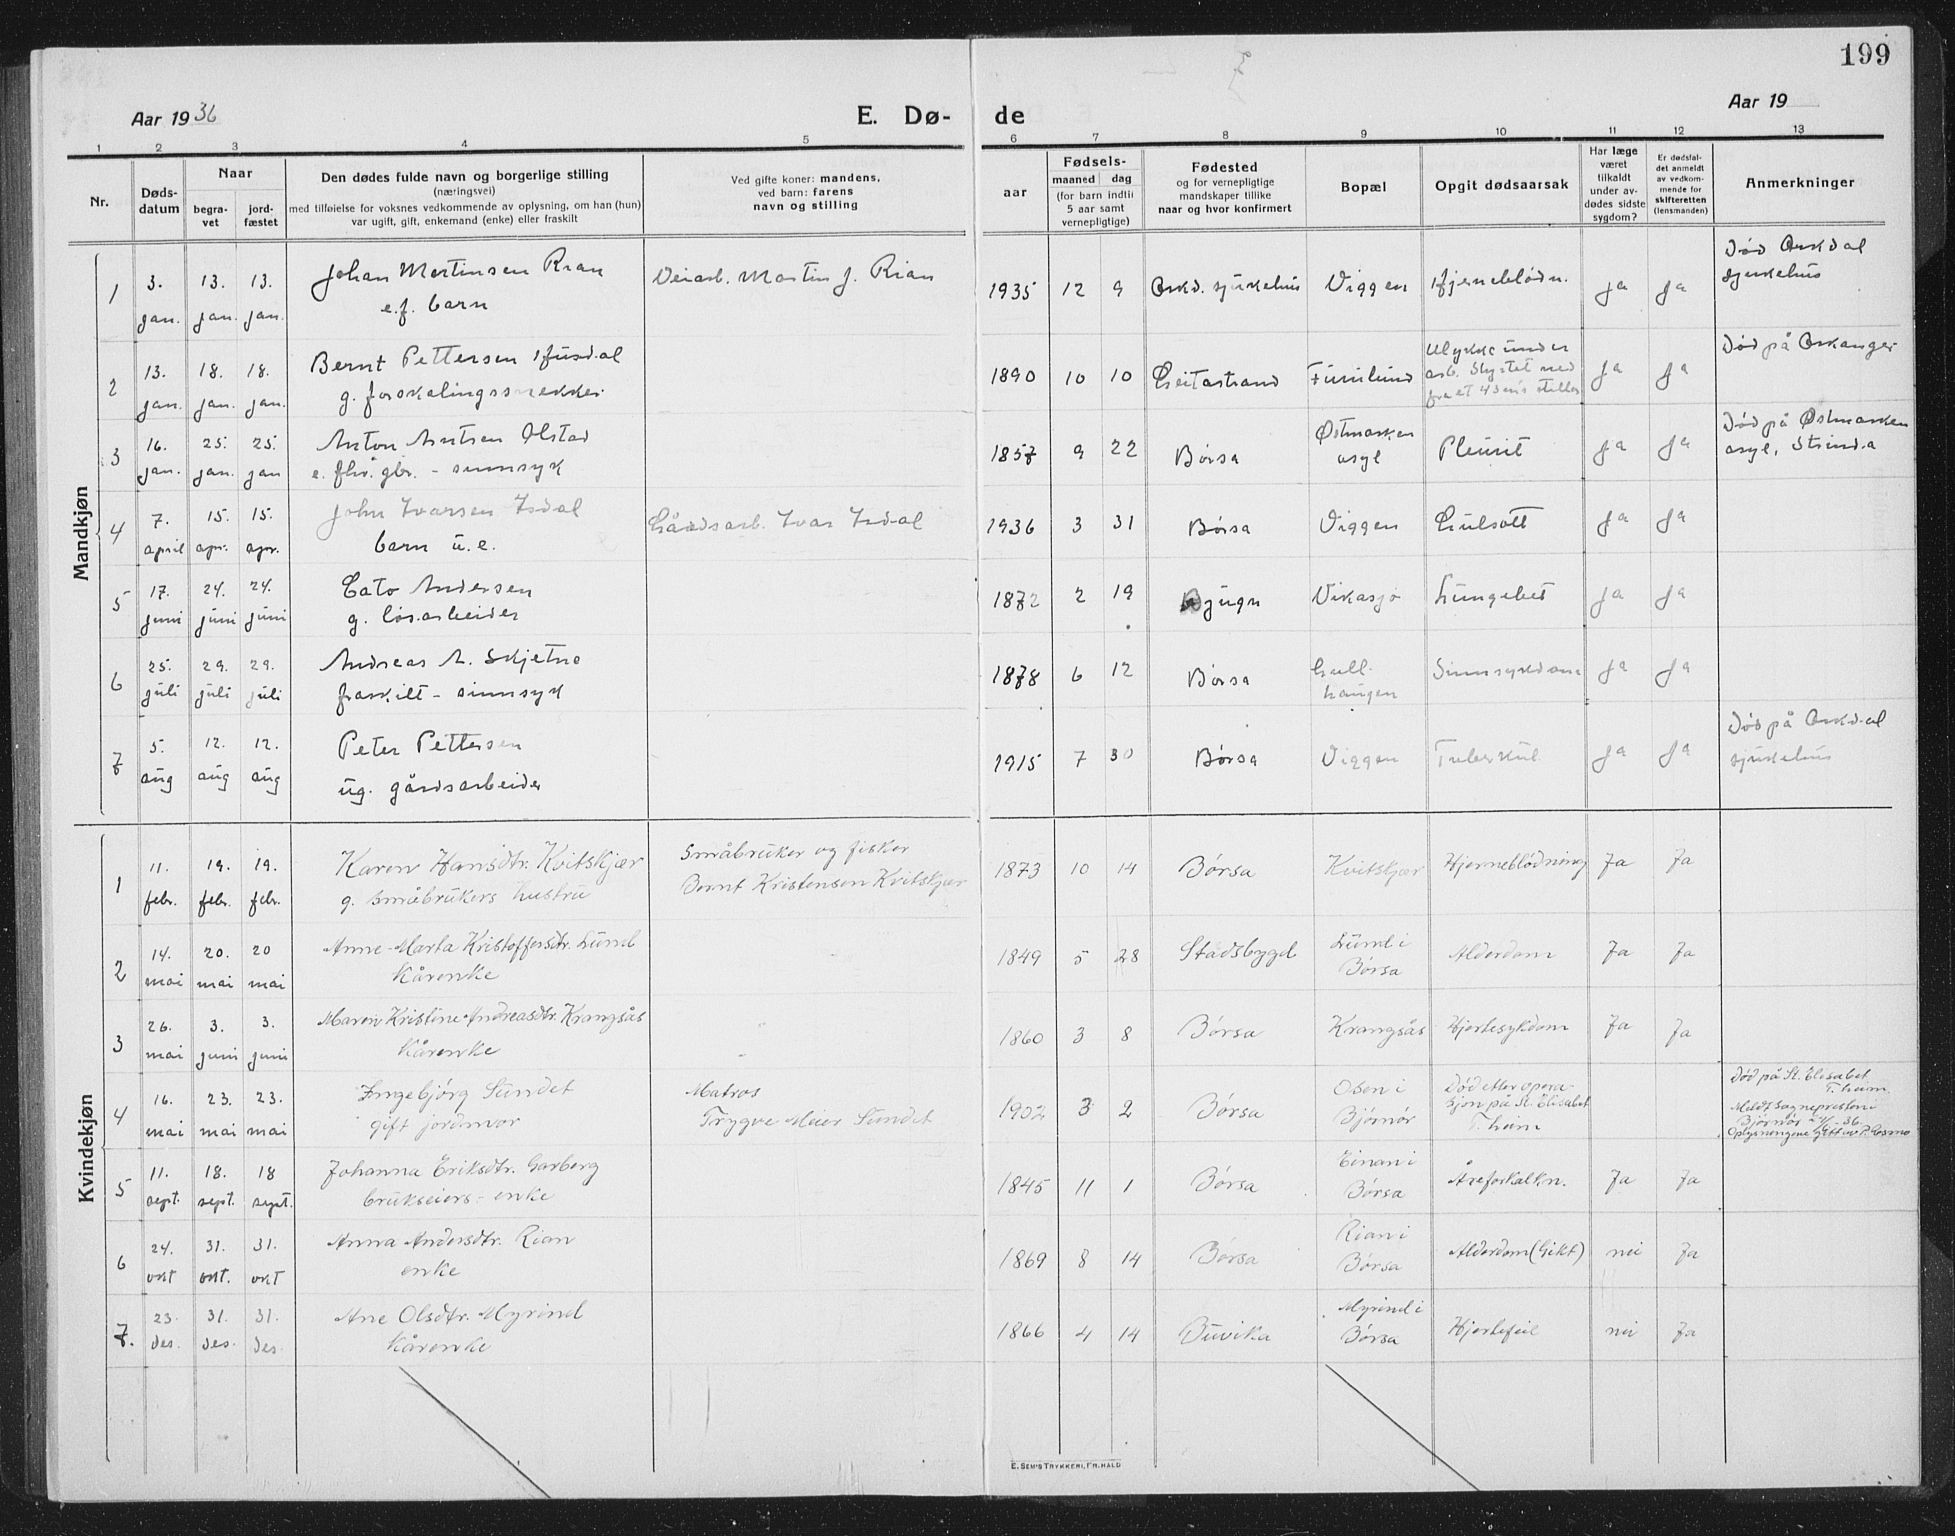 199
Aar 1936
E. Dø-
de
Aar 19
1 2 3 4 5 6 7 8 9 10 11 12 13
Nr.
Døds-
datum
Naar
begra-
vet
jord-
fæstet
Den dødes fulde navn og borgerlige stilling
(næringsvei)
med tilføielse for voksnes vedkommende av oplysning, om han (hun)
var ugift, gift, enkemand (enke) eller fraskilt
Ved gifte koner: mandens,
ved barn: farens
navn og stilling
Fødsels-
aar
maaned dag
(for barn indtil
5 aar samt
vernepligtige)
Fødested
og for vernepligtige
mandskaper tillike
naar og hvor konfirmert
Bopæl
Opgit dødsaarsak
Har læge
været
tilkaldt
under av-
dødes sidste
sygdom?
Er dødsfal-
det anmeldt
av vedkom-
mende for
skifteretten
(lensmanden)
Anmerkninger
Mandkjøn
1 3. jan. 13. jan. 13. jan.
Johan Martinsen Rian
e.f. barn
Veiarb. Martin J. Rian
1935 12 9 Orkd. sjukehus Viggen Hjerneblødn. Ja Ja
Død Orkdal
sjukehus
2 13. jan. 18. jan. 18. jan.
Bernt Pettersen Husdal
g. forskalingssnekker
1890 10 10 Leitastrand Furulund
Ulykke under
arb. Styrtet ned
fra et 4 Ja Ja
Død på Orkanger
3 16. jan. 25. jan. 25. jan
Anton Antsen Olstad
e. fhv. gbr. - sinnsyk
1857 9 22 Børsa
Østmarken
asyl
Pleurit Ja Ja
Død på Østmarken
asyl, Strinda
4 7. april 15. apr. 15. apr.
John Ivarsen Isdal
barn u. e.
Gårdsarb. Ivar Isdal
1936 3 31 Børsa Viggen Gulsott Ja Ja
5 17. juni 24. juni 24. juni
Cato Andersen
g. løsarbeider
1872 2 19 Bjugn Vikasjø Lungebet Ja Ja
6 25. juli 29. juli 29. juli
Andreas A. Skjetne
fraskilt - sinnsyk
1878 6 12 Børsa
Gull-
haugen
Sinnsykdom Ja Ja
7 5. aug 12. aug 12. aug
Peter Pettersen
ug. gårdsarbeider
1915 7 30 Børsa Viggen Tuberkul. Ja Ja
Død på Orkdal
sjukehus
Kvindekjøn
1 11. febr. 19. febr. 19. febr.
Karen Hansdtr. Kvitskjær
g. småbrukers hustru
Småbruker og fisker
Bernt Kristensen Kvitskjær
1873 10 14 Børsa Kvitskjær Hjerneblødning Ja Ja
2 14. mai 20. mai 20 mai
Anne-Marta Kristoffersdtr. Lund
Kårenke
1849 5 28 Stadsbygd
Lund i
Børsa
Alderdom Ja Ja
3 26. mai 3. juni 3. juni
Maren Kristine Andreasdtr. Krangsås
Kårenke
1860 3 8 Børsa Krangsås Hjertesykdom Ja Ja
4 16. mai 23. mai 23. mai
Ingebjørg Sundet
gift jordmor
Matros
Trygve Meier Sundet
1902 3 2 Børsa
Osen i
Bjørnør
Død etter opera-
sjon på St. Elisabet
T.heim
Død på St. Elisabet
T.heim
Meldt sognepresten i
Bjørnør
Oplysningene gitt av
5 11. sept. 18. sept. 18 sept.
Johanna Eriksdtr. Garberg
brukseiers-enke
1845 11 1 Børsa
Einan i
Børsa
Åreforkalkn. Ja Ja
6 24. okt 31. okt. 31. okt
Anna Andersdtr. Rian
enke
1869 8 14 Børsa
Rian i
Børsa
Alderdom (Gikt) nei Ja
7. 23. des. 31. des. 31. des
Ane Olsdtr. Myrind
Kårenke
1866 4 14 Buvika
Myrind i
Børsa
Hjertefeil nei Ja
E. SEM'S TRYKKERI, FR.HALD